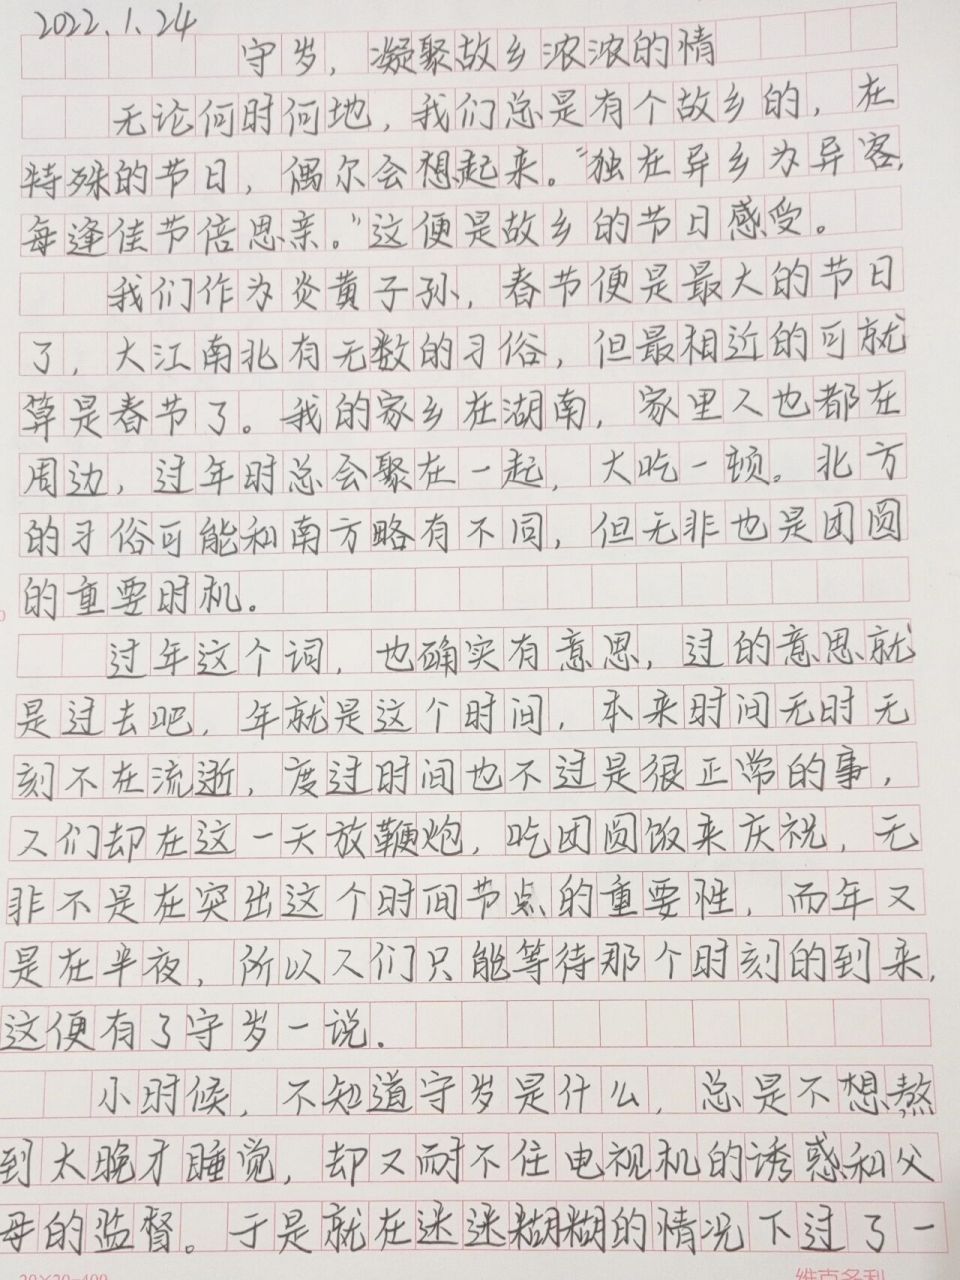 2022.1.24
守岁，凝聚故乡浓浓的情
无论何时何地，我们总是有个故乡的，在
特殊的节日，偶尔会想起来。“独在异乡为异客，
每逢佳节倍思亲。”这便是故乡的节日感受。
我们作为炎黄子孙，春节便是最大的节日
了，大江南北有无数的习俗，但最相近的可就
算是春节了。我的家乡在湖南，家里人也都在
周边，过年时总会聚在一起，大吃一顿。北方
的习俗可能和南方略有不同，但无非也是团圆
的重要时机。
过年这个词，也确实有意思，过的意思就
是过去吧，年就是这个时间，本来时间无时无
刻不在流逝，度过时间也不过是很正常的事，
人们却在这一天放鞭炮，吃团圆饭来庆祝，无
非不是在突出这个时间节点的重要性，而年又
是在半夜，所以人们只能等待那个时刻的到来，
这便有了守岁一说．
小时候，不知道守岁是什么，总是不想熬
到太晚才睡觉，却又耐不住电视机的诱惑和父
母的监督。于是就在迷迷糊糊的情况下过了一
20×20=400